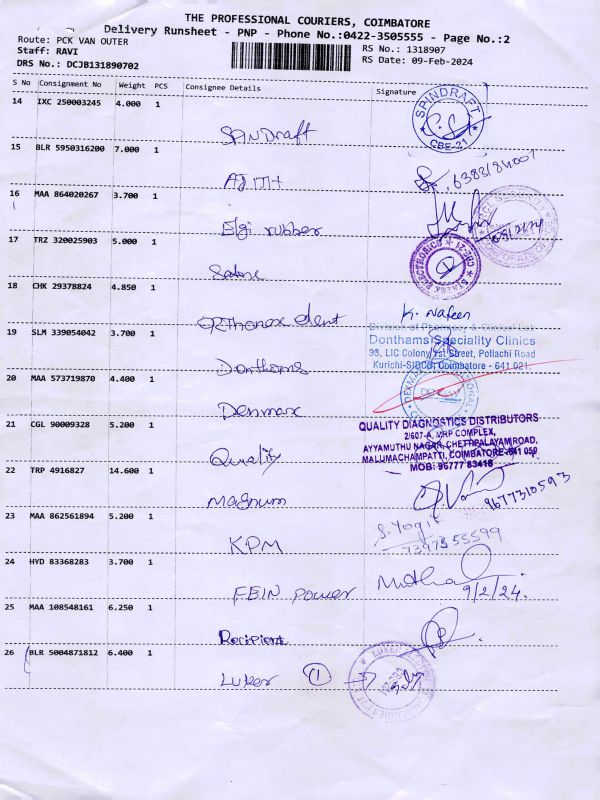 THE PROFESSIONAL COURIERS, COIMBATORE
Delivery Runsheet - PNP - Phone No.:0422-3505555 - Page No.:2
Route: PCK VAN OUTER
RS No.: 1318907
Staff: RAVI
RS Date: 09-Feb-2024
DRS No.: DCJB131890702
S No Consignment No Weight PCS Consignee Details Signature
14 IXC 250003245 4.000 1
SPINDRAFT
CBE-21
SPINDraft
15 BLR 5950316200 7.000 1
AJITH
16 MAA 864020267 3.700 1
Elgi rubber
17 TRZ 320025903 5.000 1
18 CHK 29378824 4.850 1
Orthonex dent
K. Nafeen
19 SLM 339054042 3.700 1
Donthams Speciality Clinics
33, LIC Colony 1st Street, Pollachi Road
Kurichi-SIDCO, Coimbatore - 641 021
Donthams
20 MAA 573719870 4.400 1
Denmax
21 CGL 90009328 5.200 1
QUALITY DIAGNOSTICS DISTRIBUTORS
2/607-A, MRP COMPLEX,
AYYAMUTHU NAGAR, CHETTIPALAYAM ROAD,
MALUMACHAMPATTI, COIMBATORE-641 050
MOB: 96777 83418
Quality
22 TRP 4916827 14.600 1
Magnum
9677310593
23 MAA 862561894 5.200 1
S. Yogi
7397355599
KPM
24 HYD 83368283 3.700 1
FEIN power
9/2/24.
25 MAA 108548161 6.250 1
Recipient
26 BLR 5004871812 6.400 1
Luker 1